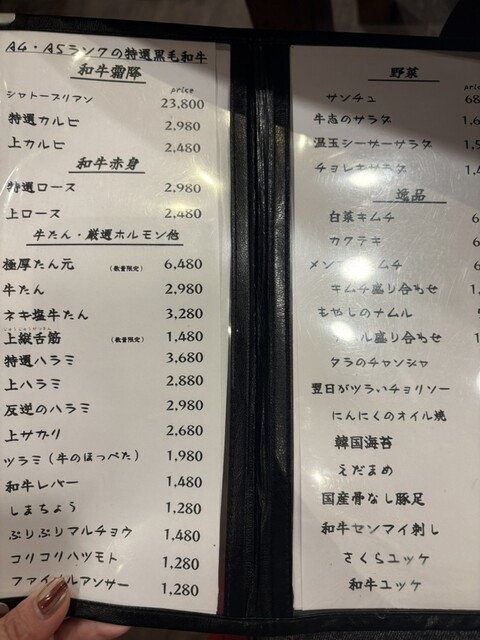 A4・A5ランクの特選黒毛和牛
和牛霜降 price
シャトーブリアン 23,800
特選カルビ 2,980
上カルビ 2,480
和牛赤身
特選ロース 2,980
上ロース 2,480
牛たん・厳選ホルモン他
極厚たん元 (数量限定) 6,480
牛たん 2,980
ネギ塩牛たん 3,280
上縦舌筋 (数量限定) 1,480
特選ハラミ 3,680
上ハラミ 2,880
反逆のハラミ 2,980
上サガリ 2,680
ツラミ(牛のほっぺた) 1,980
和牛レバー 1,480
しまちょう 1,280
ぷりぷりマルチョウ 1,480
コリコリハツモト 1,280
ファイナルアンサー 1,280
野菜 price
サンチュ
牛志のサラダ
温玉シーザーサラダ
チョレギサラダ
逸品
白菜キムチ
カクテキ
キムチ盛り合わせ
もやしのナムル
盛り合わせ
タラのチャンジャ
翌日がツラいチョリソー
にんにくのオイル焼
韓国海苔
えだまめ
国産骨なし豚足
和牛センマイ刺し
さくらユッケ
和牛ユッケ